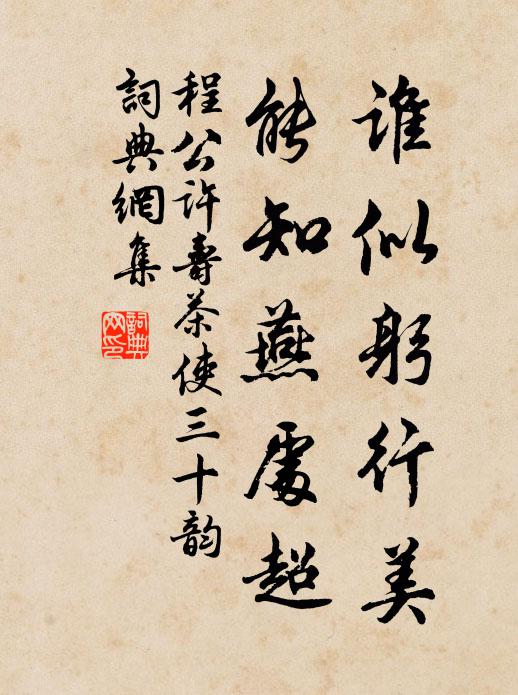 谁似躬行美
能知燕處超
程公许壽茶使三十韵
詞典網集
詞典網印